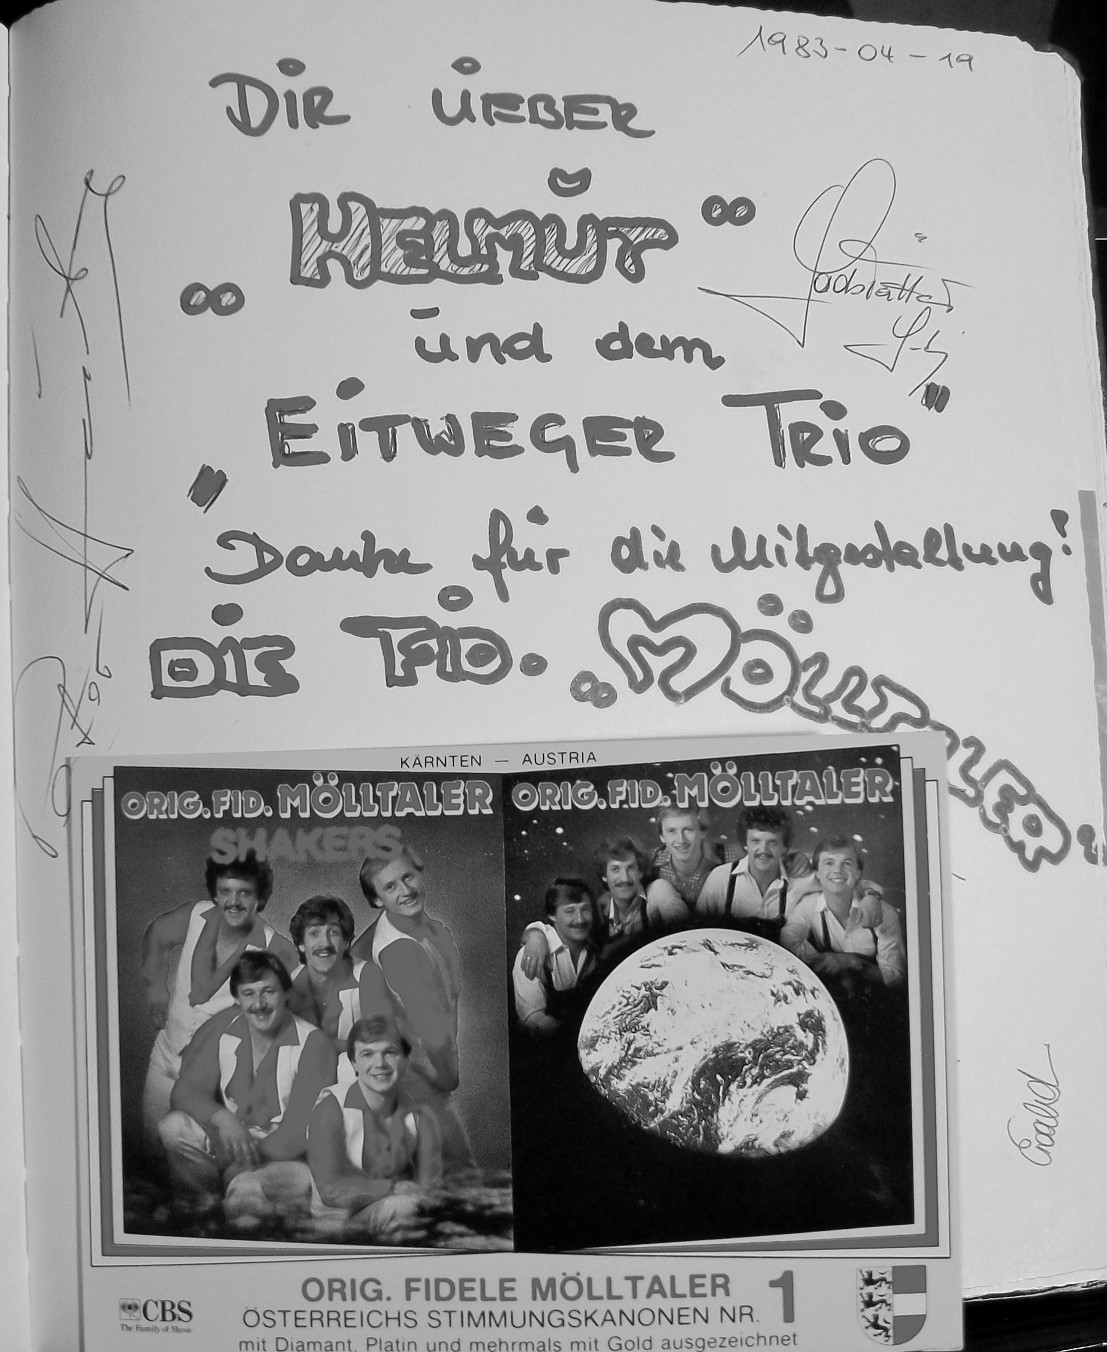 1983-04-19
DIR ÜEBER
„HELMUT"
und dem
„EITWEGER TRIO"
Danke für die Mitgestaltung!
DIE FID. „MÖLLTALER"
KÄRNTEN — AUSTRIA
ORIG. FID. MÖLLTALER
SHAKERS
ORIG. FID. MÖLLTALER
Ewald
ORIG. FIDELE MÖLLTALER
ÖSTERREICHS STIMMUNGSKANONEN NR. 1
mit Diamant, Platin und mehrmals mit Gold ausgezeichnet
CBS
The Family of Music